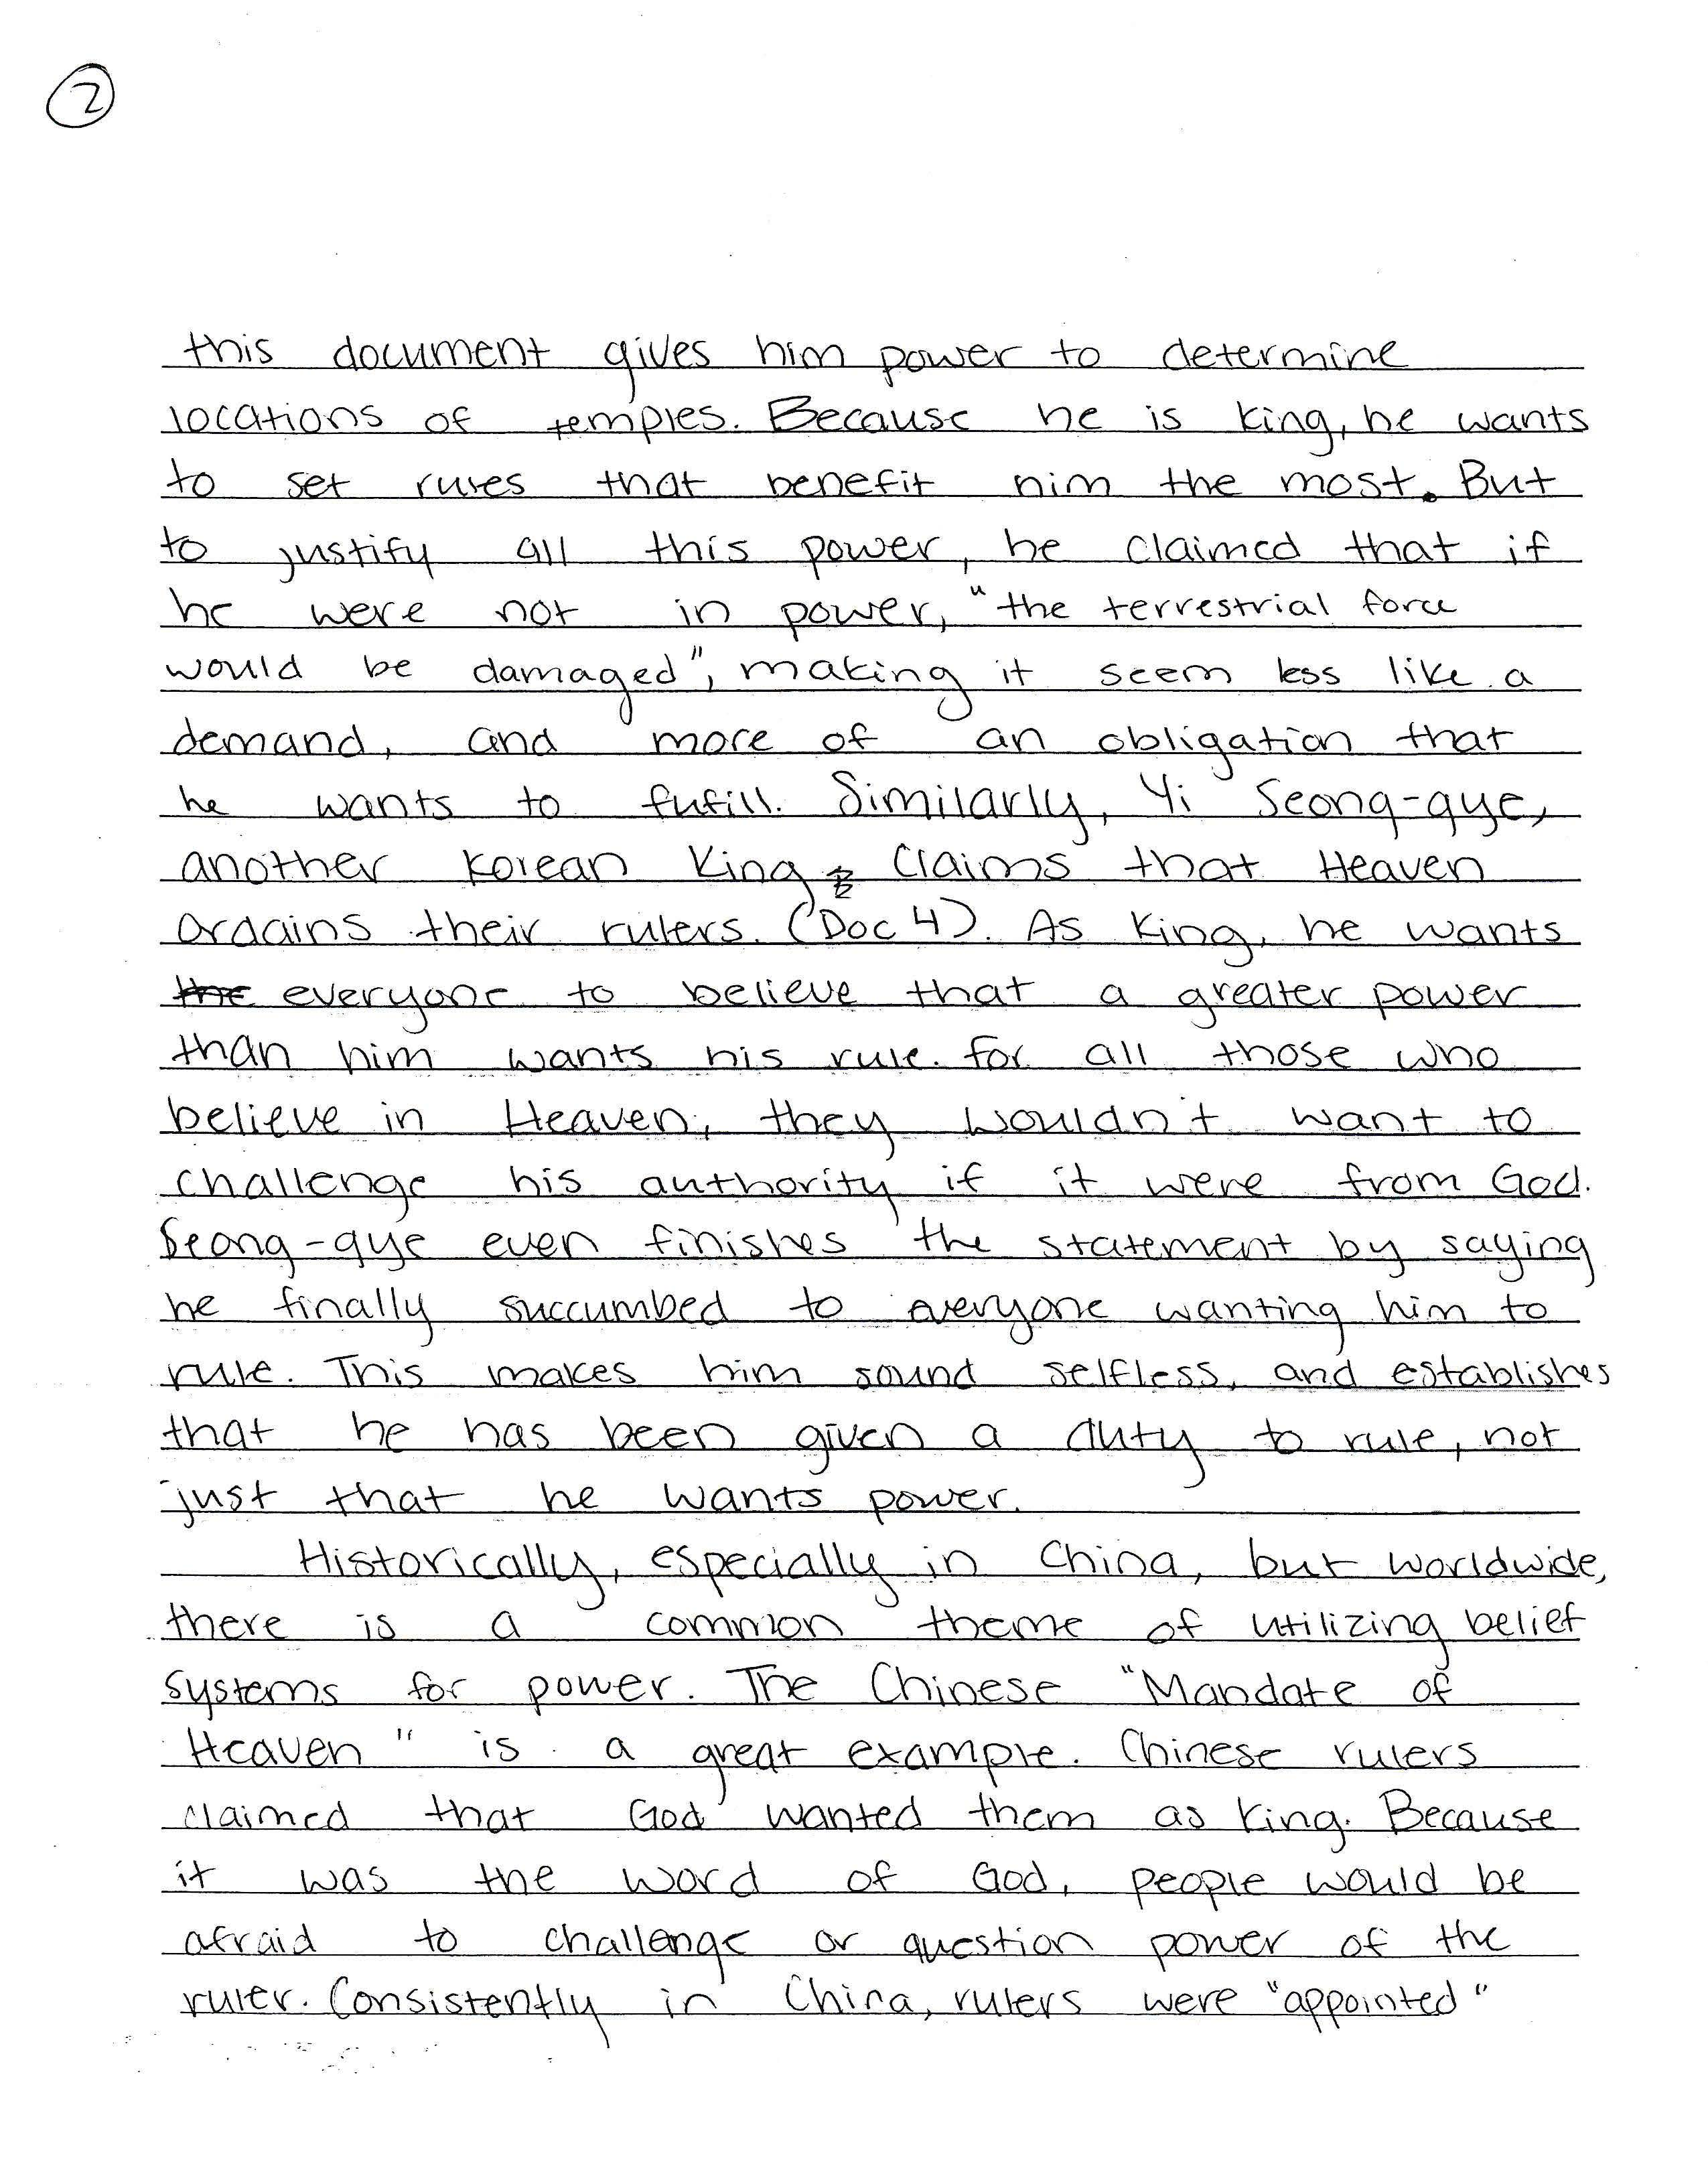 2
this document gives him power to determine
locations of temples. Because he is king, he wants
to set rules that benefit him the most. But
to justify all this power, he claimed that if
he were not in power, "the terrestrial force
would be damaged", making it seem less like a
demand, and more of an obligation that
he wants to fufill. Similarly, Yi Seong-gye,
another Korean King, claims that Heaven
ordains their rulers. (Doc 4). As King, he wants
the everyone to believe that a greater power
than him wants his rule. For all those who
believe in Heaven, they wouldn't want to
challenge his authority if it were from God.
Seong-gye even finishes the statement by saying
he finally succumbed to everyone wanting him to
rule. This makes him sound selfless, and establishes
that he has been given a duty to rule, not
just that he wants power.
Historically, especially in China, but worldwide,
there is a common theme of utilizing belief
systems for power. The Chinese "Mandate of
Heaven" is a great example. Chinese rulers
claimed that God wanted them as king. Because
it was the word of God, people would be
afraid to challenge or question power of the
ruler. Consistently in China, rulers were "appointed"